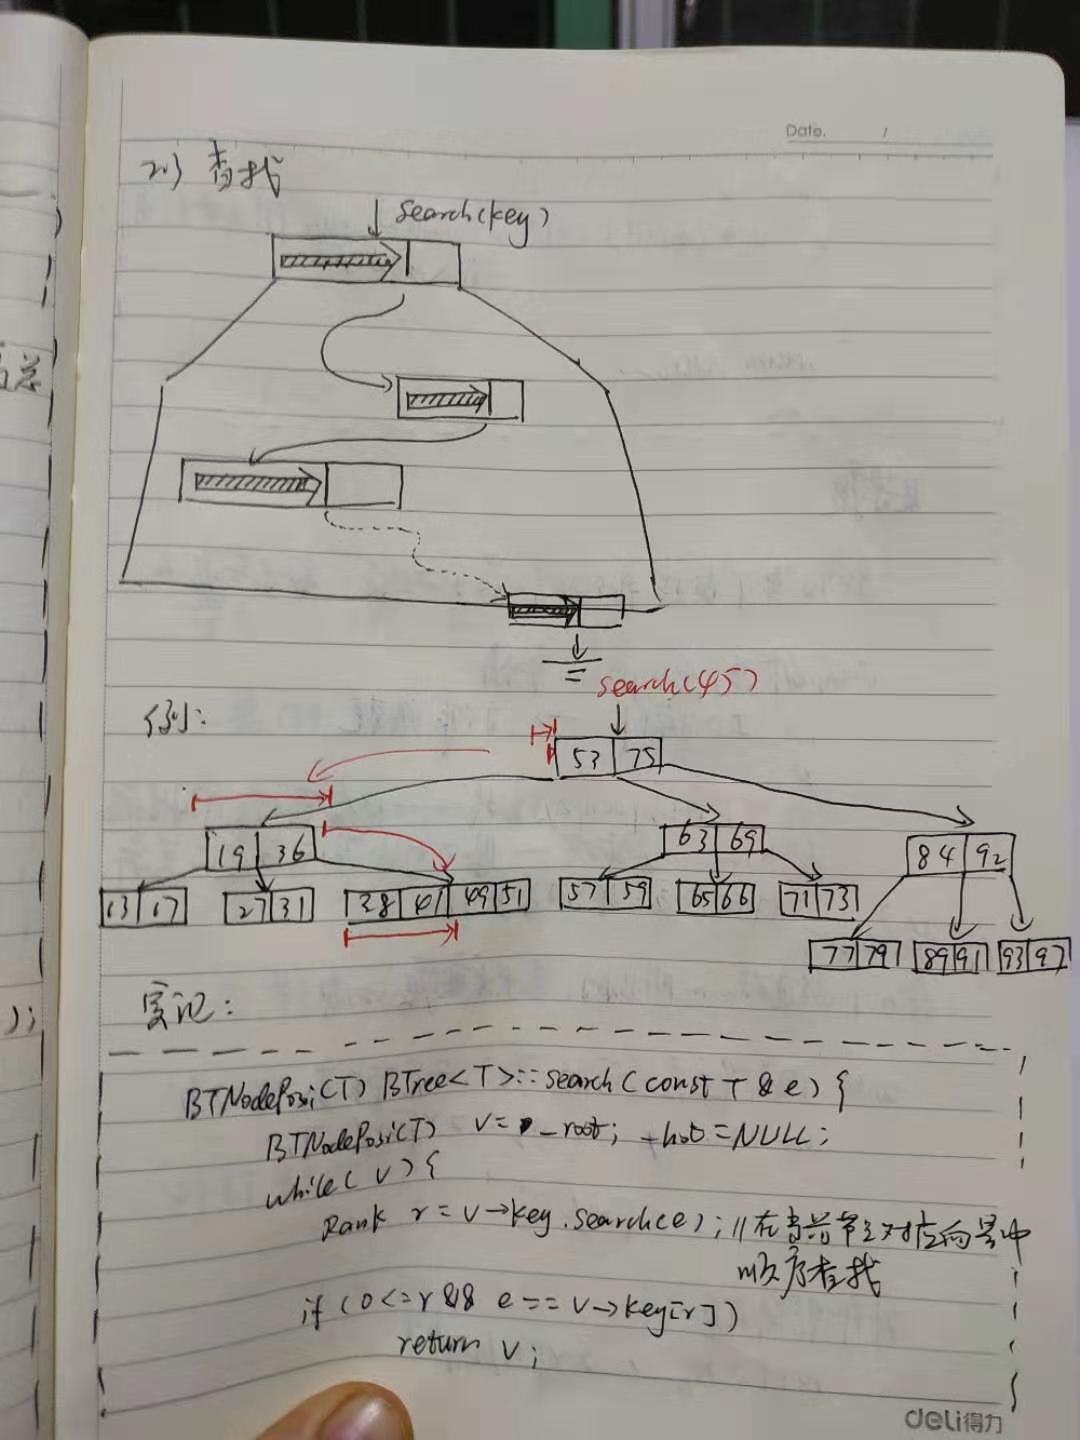 Date. /
2) 查找
search(key)
search(45)
例:
53 75
19 36
63 69
84 92
13 17
27 31
38 41 49 51
57 59
65 66
71 73
77 79
89 91
93 97
实现:
BTNodePosi(T) BTree<T>::search(const T & e) {
BTNodePosi(T) v = _root; _hot = NULL;
while( v ) {
Rank r = v→key.search(e); //在当前节点对应向量中
顺序查找
if (0 <= r && e == v→key[r])
return v;
deli得力
);